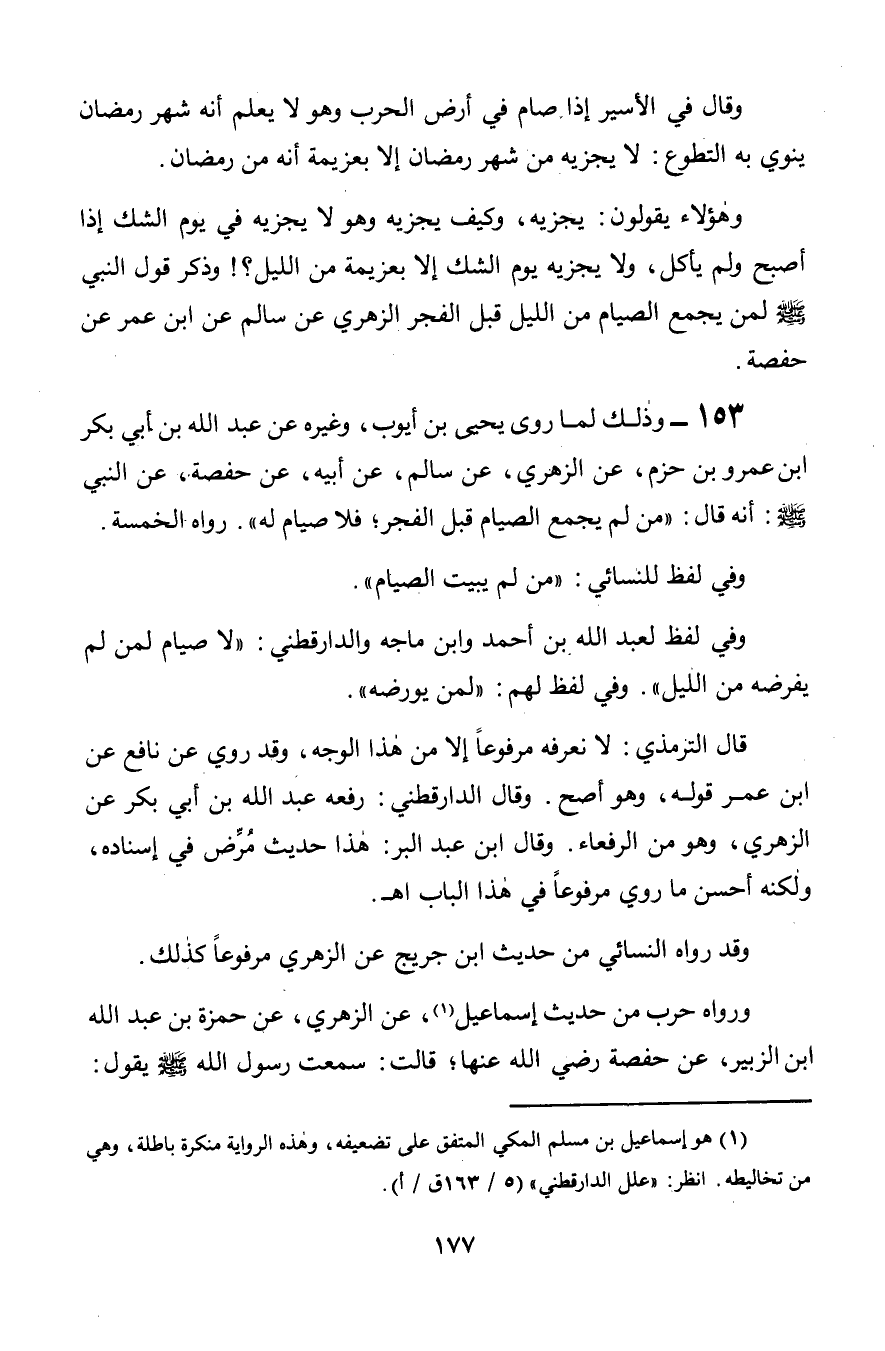 وقال في الأسير إذا صام في أرض الحرب وهو لا يعلم أنه شهر رمضان
ينوي به التطوع: لا يجزيه من شهر رمضان إلا بعزيمة أنه من رمضان.
وهٰؤلاء يقولون: يجزيه، وكيف يجزيه وهو لا يجزيه في يوم الشك إذا
أصبح ولم يأكل، ولا يجزيه يوم الشك إلا بعزيمة من الليل؟! وذكر قول النبي
ﷺ لمن يجمع الصيام من الليل قبل الفجر الزهري عن سالم عن ابن عمر عن
حفصة.
١٥٣ ـ وذٰلك لما روى يحيى بن أيوب، وغيره عن عبد الله بن أبي بكر
ابن عمرو بن حزم، عن الزهري، عن سالم، عن أبيه، عن حفصة، عن النبي
ﷺ: أنه قال: «من لم يجمع الصيام قبل الفجر؛ فلا صيام له». رواه الخمسة.
وفي لفظ للنسائي: «من لم يبيت الصيام».
وفي لفظ لعبد الله بن أحمد وابن ماجه والدارقطني: «لا صيام لمن لم
يفرضه من الليل». وفي لفظ لهم: «لمن يورضه».
قال الترمذي: لا نعرفه مرفوعاً إلا من هٰذا الوجه، وقد روي عن نافع عن
ابن عمر قوله، وهو أصح. وقال الدارقطني: رفعه عبد الله بن أبي بكر عن
الزهري، وهو من الرفعاء. وقال ابن عبد البر: هٰذا حديث مُرِّض في إسناده،
ولٰكنه أحسن ما روي مرفوعاً في هٰذا الباب اهـ.
وقد رواه النسائي من حديث ابن جريج عن الزهري مرفوعاً كذٰلك.
ورواه حرب من حديث إسماعيل(١)، عن الزهري، عن حمزة بن عبد الله
ابن الزبير، عن حفصة رضي الله عنها؛ قالت: سمعت رسول الله ﷺ يقول:
(١) هو إسماعيل بن مسلم المكي المتفق على تضعيفه، وهٰذه الرواية منكرة باطلة، وهي
من تخاليطه. انظر: «علل الدارقطني» (٥ / ١٦٣ق / أ).
١٧٧